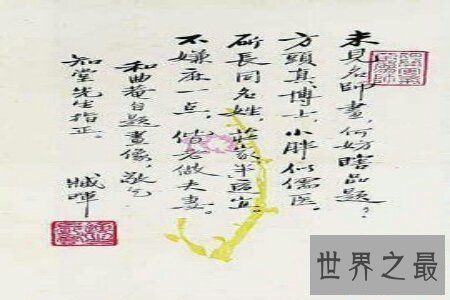 未見名師畫,何妨瞎品題?
方頭真博士,小胖似儒医。
所長同名姓,莊家半适宜。
不嫌麻一点,偕老做夫妻。
和曲菴自題畫像,敬乞
知堂先生指正。
臧暉
世界之最